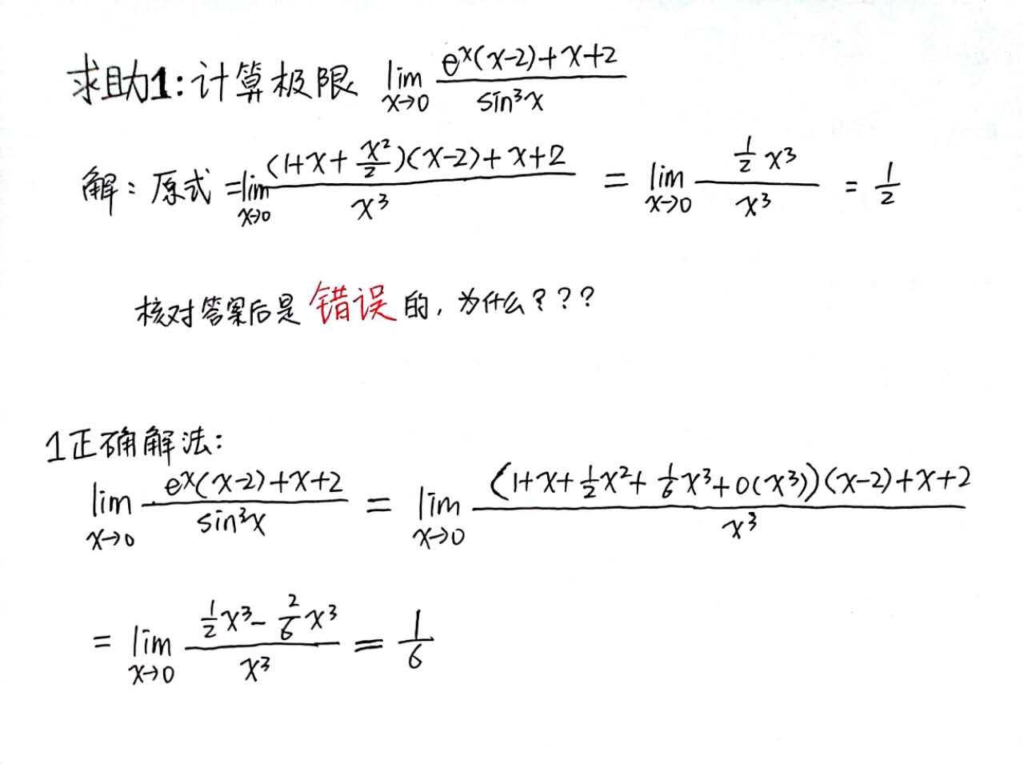 求助1:计算极限 lim x→0 e^x(x-2)+x+2 / sin³x
解:原式=lim x→0 (1+x+x²/2)(x-2)+x+2 / x³ = lim x→0 ½x³ / x³ = 1/2
核对答案后是错误的,为什么???
1正确解法:
lim x→0 e^x(x-2)+x+2 / sin³x = lim x→0 (1+x+½x²+⅙x³+o(x³))(x-2)+x+2 / x³
= lim x→0 ½x³-2/6x³ / x³ = 1/6